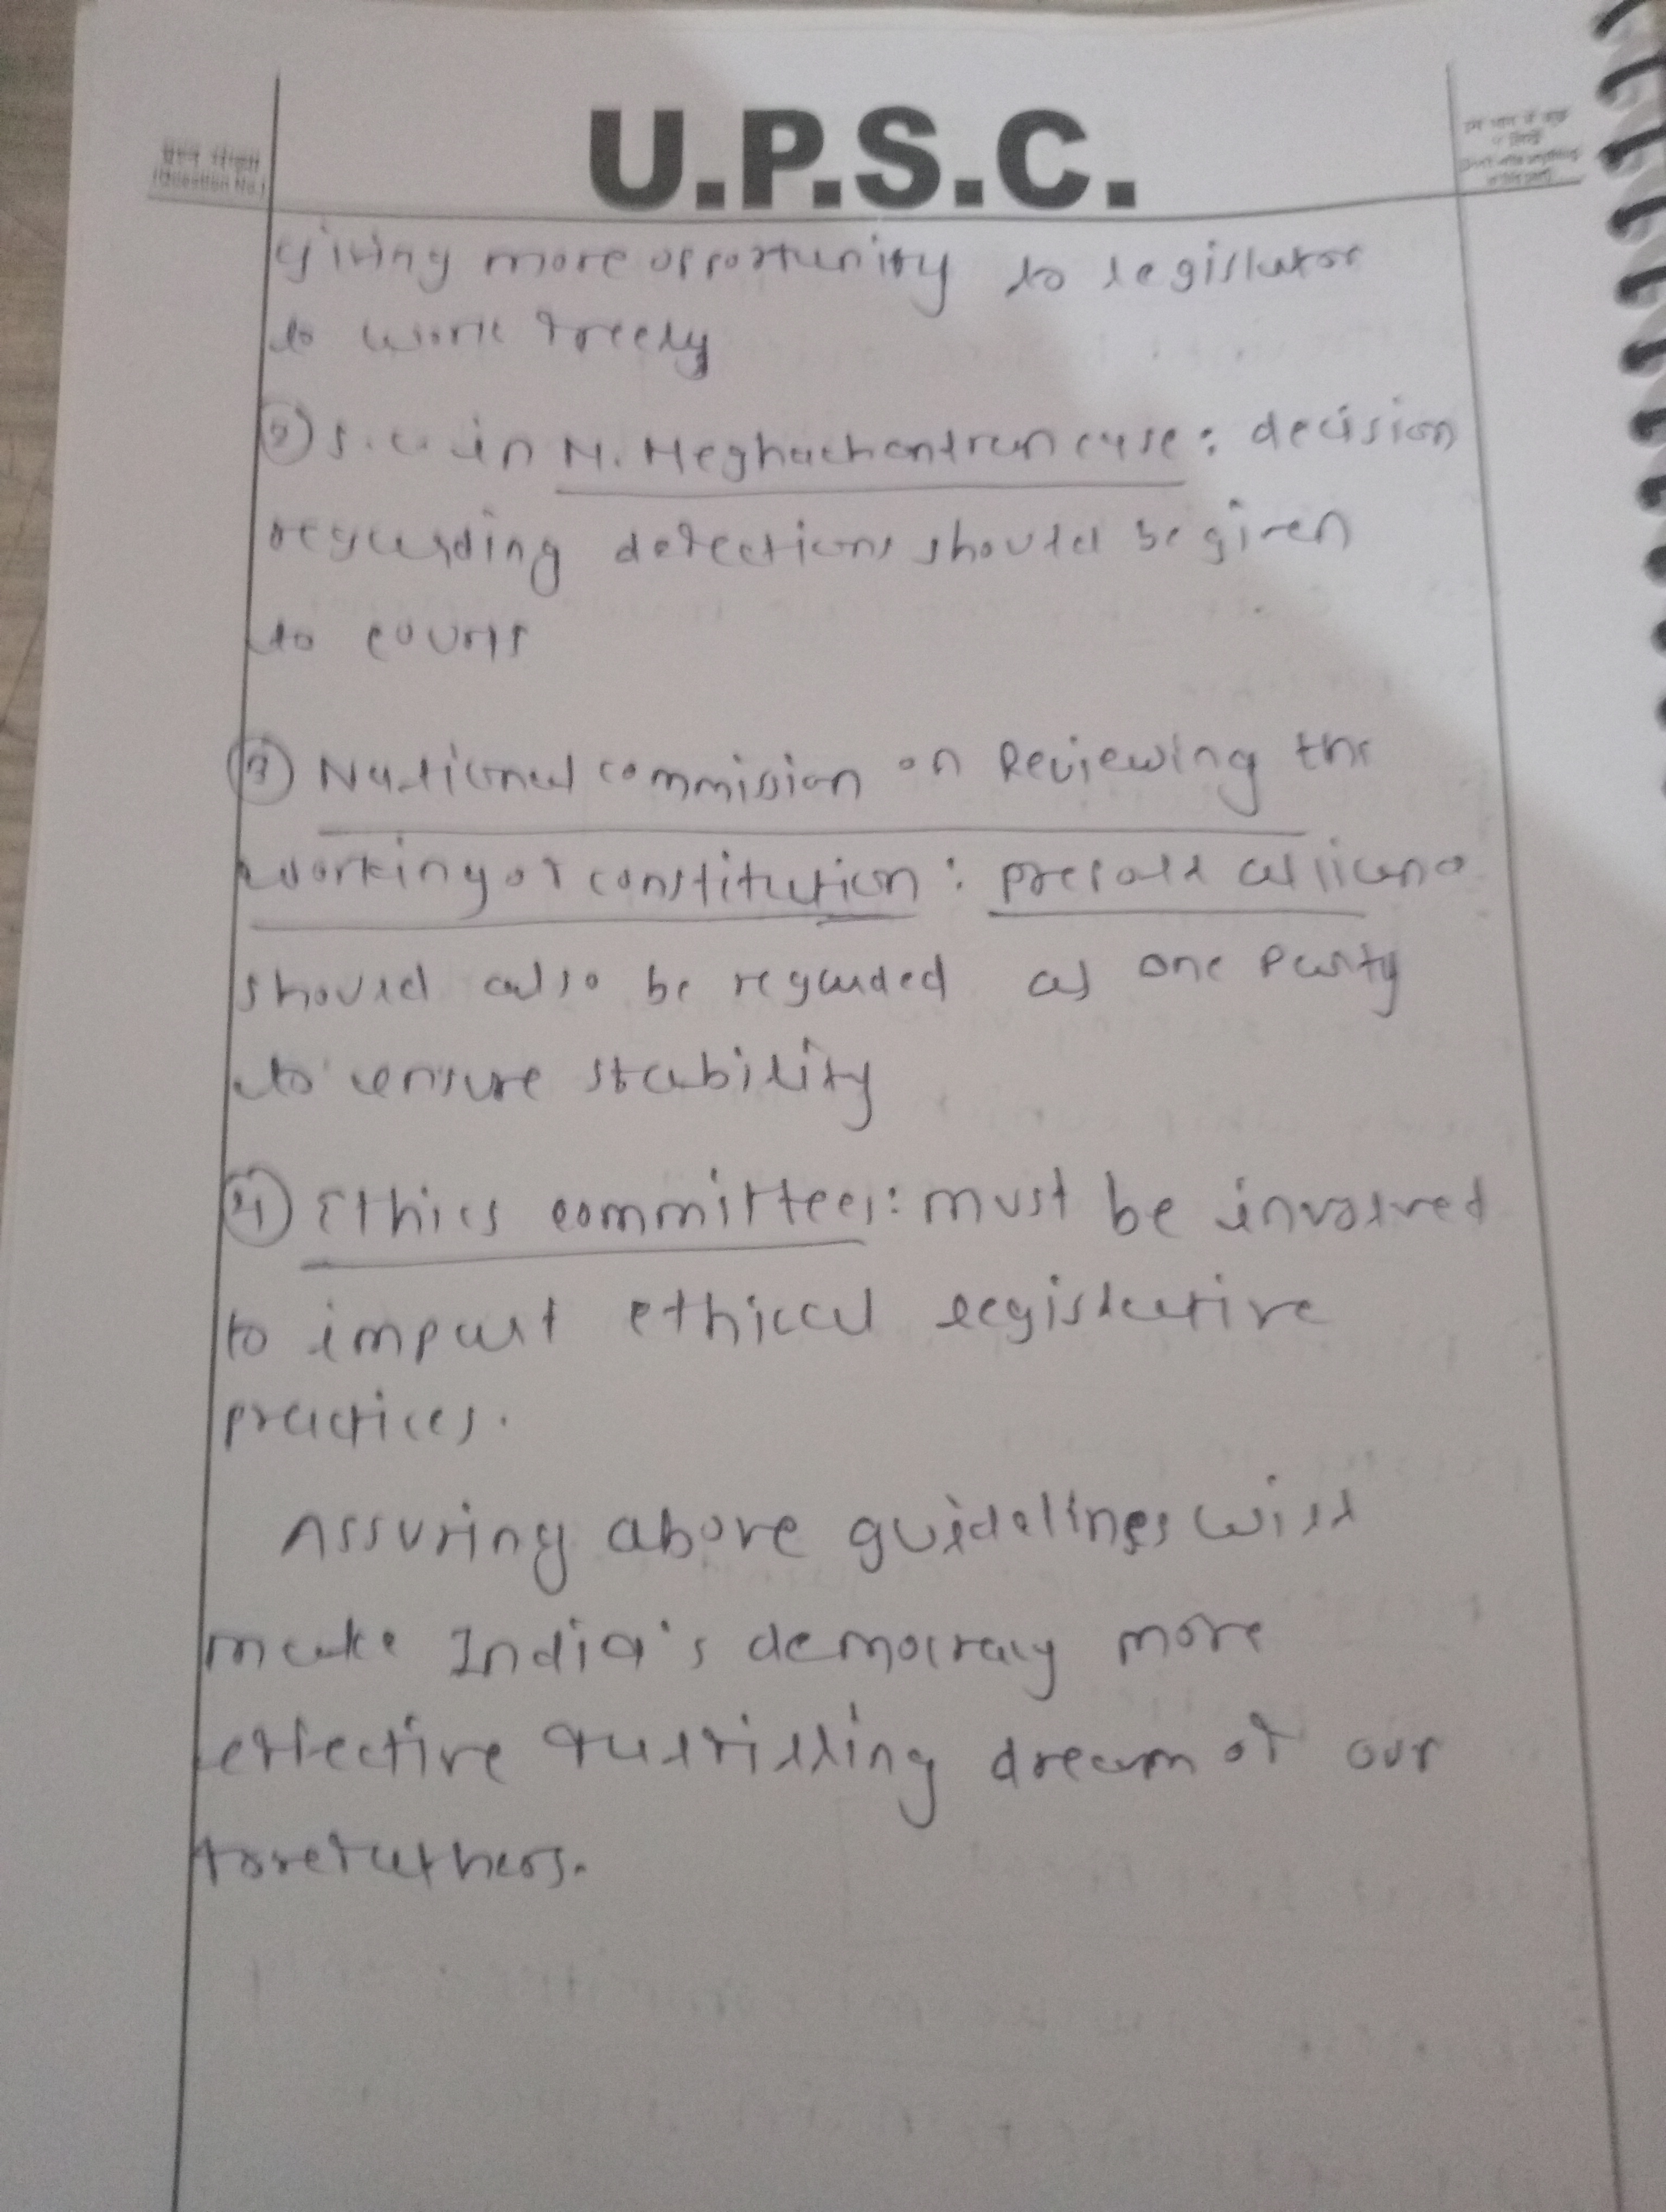 U.P.S.C.
(Question No.)
giving more opportunity to legislator
to work freely
② S.C. in N. Meghachandran case: decision
regarding defections should be given
to courts
③ National commission on Reviewing the
working of constitution: prepoll alliance
should also be regarded as one party
to ensure stability
④ Ethics committees: must be involved
to impart ethical legislative
practices.
Assuring above guidelines will
make India's democracy more
effective fulfilling dream of our
forefathers.